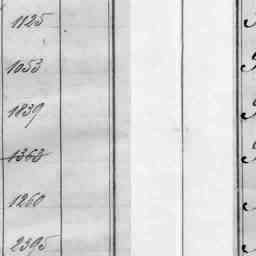 1125
1053
1839
1363
1260
2395